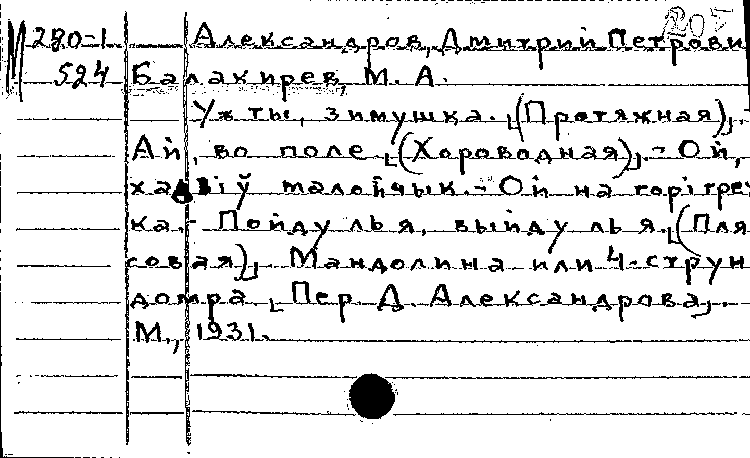 207
М 280-1 Александров, Дмитрий Петрови
524 Балакирев, М. А.
Уж ты, зимушка. [(Протяжная)]. -
Ай, во поле [(Хороводная)]. - Ой,
малойчык. - Ой на горі гре
ка. - Пойду ль я, выйду ль я. [(Пля
совая)] Мандолина или 4-струн
домра [Пер. Д. Александрова].
М., 1931.